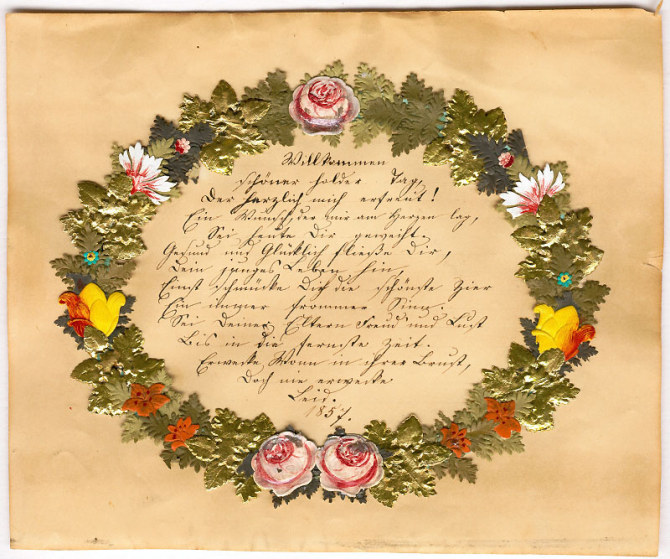 Willkommen
schöner holder Tag,
Der herzlich mich erfreut!
Ein Wunsch der mir am Herzen lag,
Sei heute Dir geweiht.
Gesund und Glücklich fließe Dir,
Dein junges Leben hin
Einst schmücke Dich die schönste Zier
Ein immer frommer Sinn.
Sei Deiner Eltern Freud' und Lust
Bis in die fernste Zeit.
Erwecke Wonn in ihrer Brust,
Doch nie erwecke
Leid.
1857.